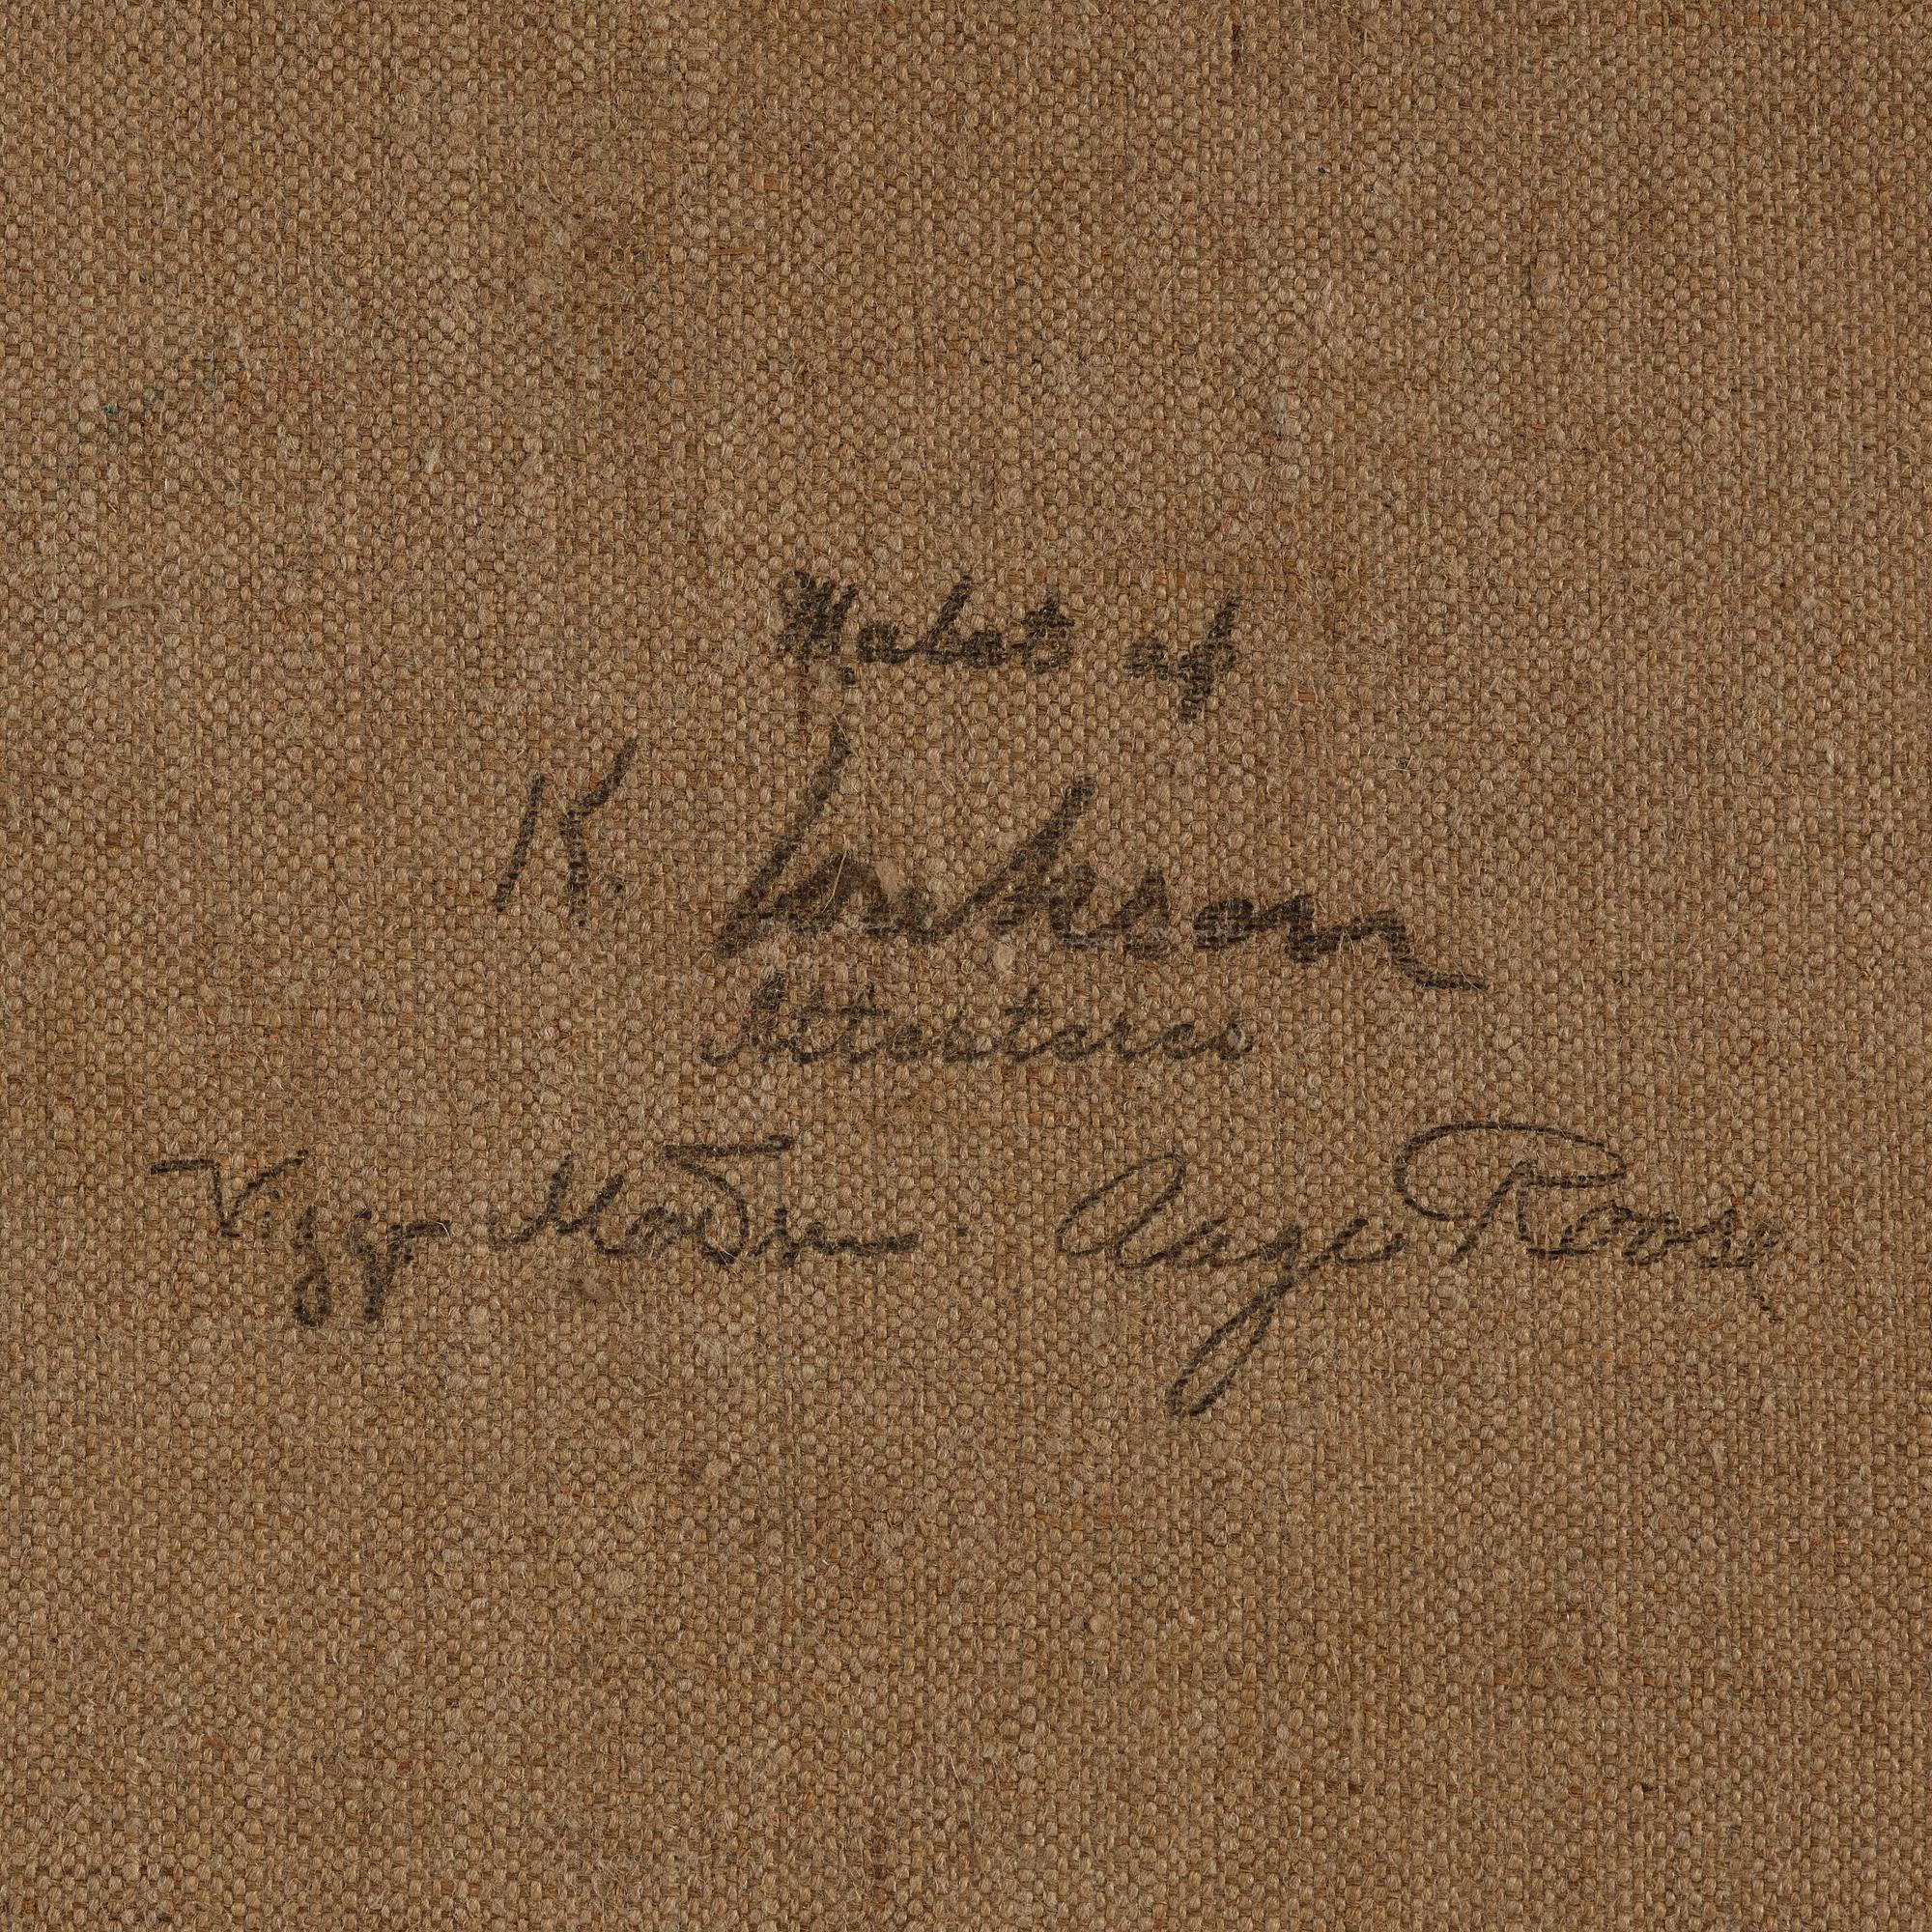 Malet af
K. Isakson
Attesteres
Viggo Madsen. Aage Roose